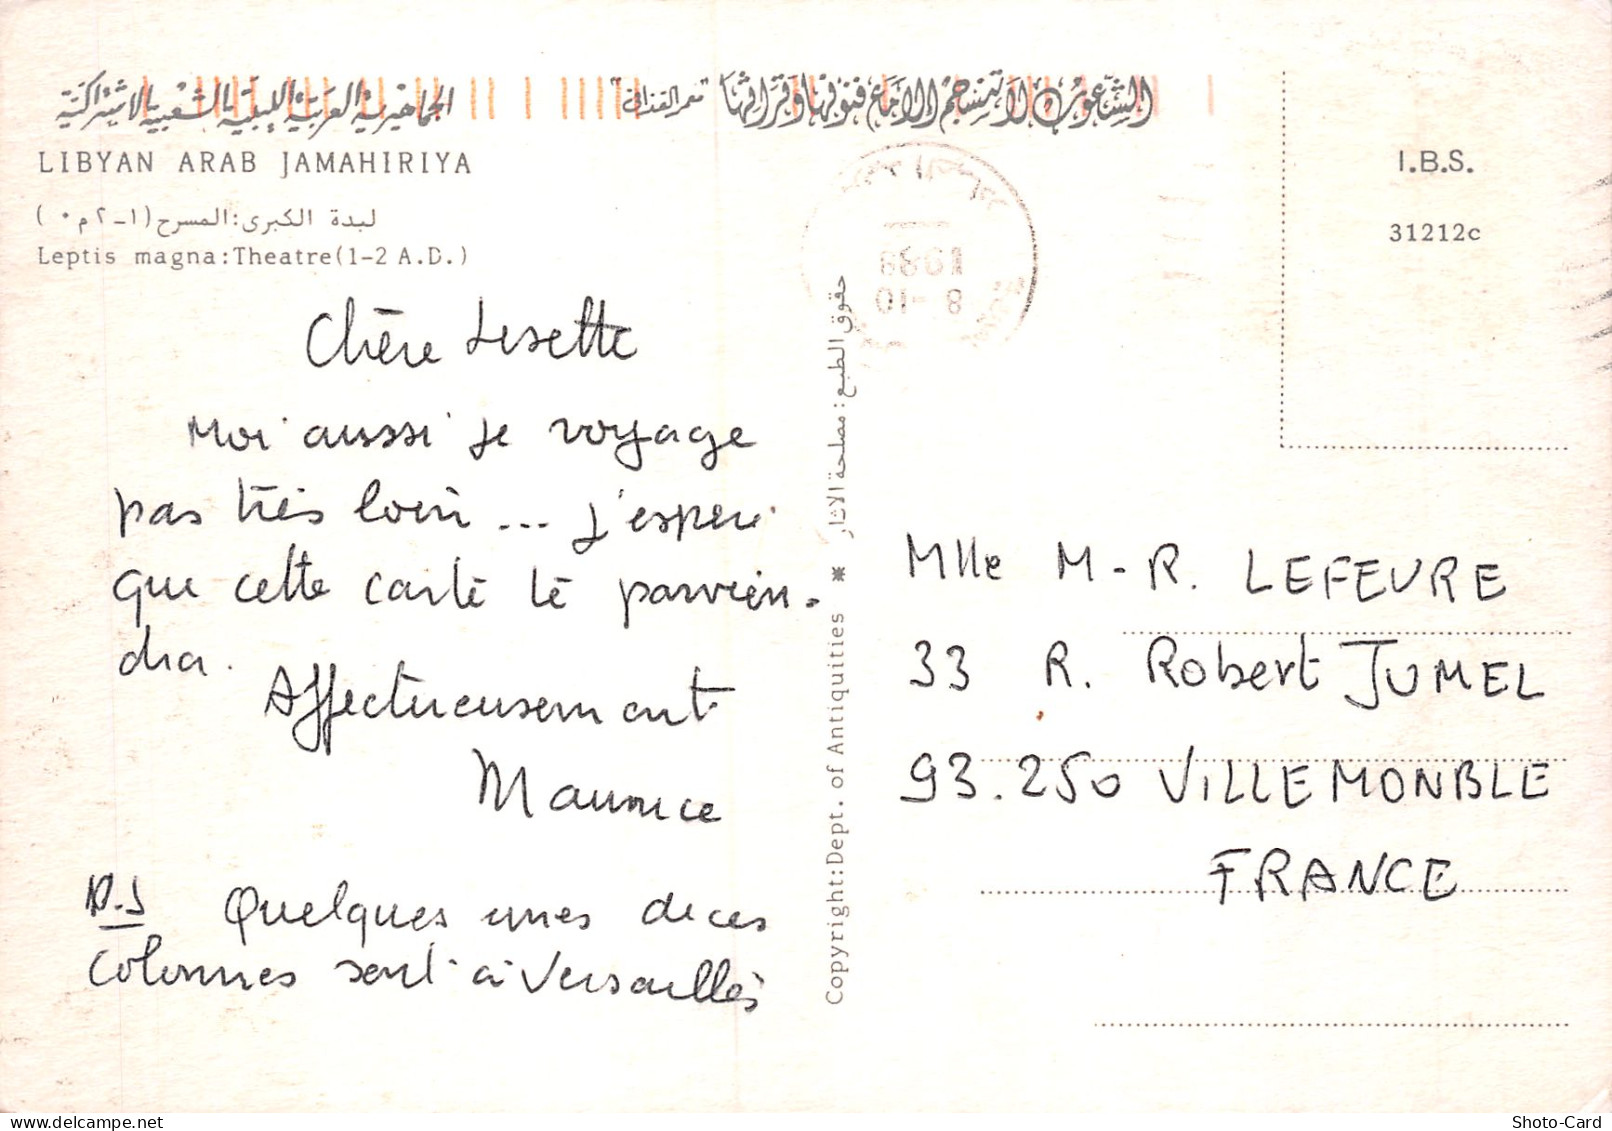 الجماهيرية العربية الليبية الشعبية الاشتراكية
الشعوب لا تنسجم إلا مع فنونها وتراثها "معمر القذافي"
LIBYAN ARAB JAMAHIRIYA
لبدة الكبرى:المسرح(١-٢م٠)
Leptis magna:Theatre(1-2 A.D.)
Chère Lisette
Moi aussi je voyage
pas très loin ... J'espère
que cette carte te parvien-
dra.
Affectueusement
Maurice
P.S Quelques unes de ces
colonnes sont à Versailles
حقوق الطبع: مصلحة الآثار
Copyright:Dept. of Antiquities *
1989
8 -10
I.B.S.
31212c
Mlle M-R. LEFEVRE
33 R. Robert JUMEL
93.250 VILLEMONBLE
FRANCE
Shoto-Card